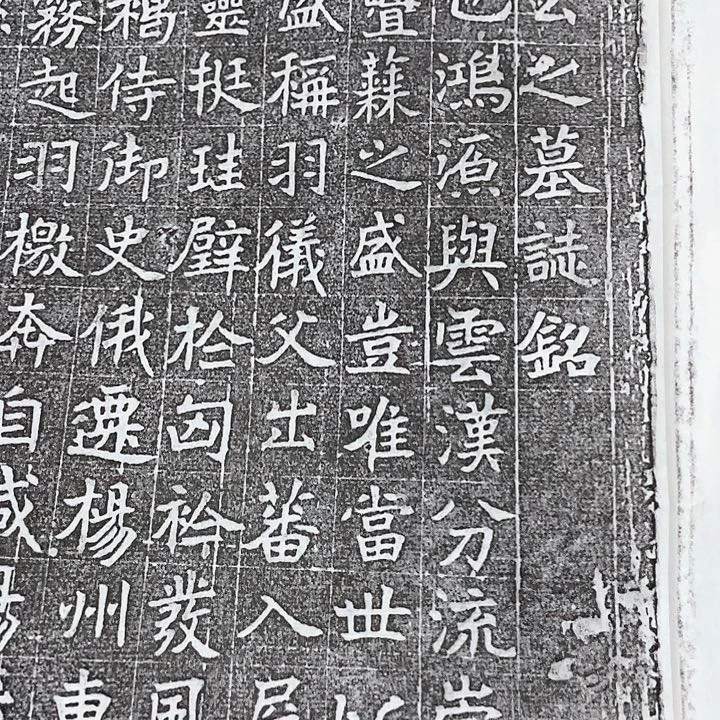 之墓誌銘
也鴻源與雲漢分流崇
疊蕤之盛豈唯當世
盛稱羽儀父出蕃入
靈挺珪璧於囟衿發風
侍御史俄遷楊州東
霧起羽檄奔自咸